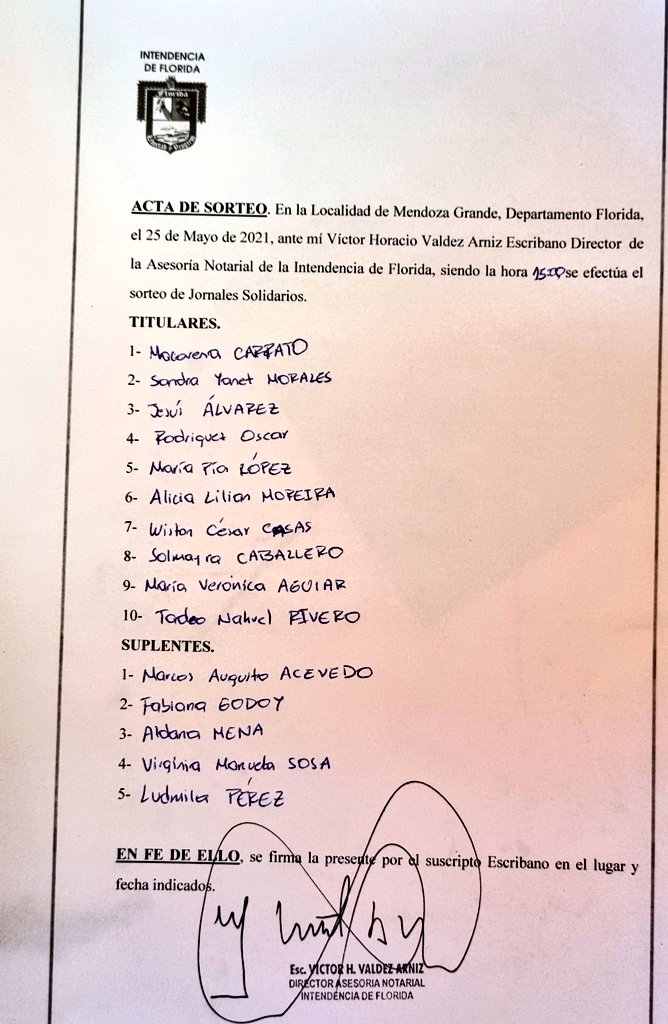 INTENDENCIA
DE FLORIDA
Florida
Libertad y Progreso
ACTA DE SORTEO. En la Localidad de Mendoza Grande, Departamento Florida,
el 25 de Mayo de 2021, ante mí Víctor Horacio Valdez Arniz Escribano Director de
la Asesoría Notarial de la Intendencia de Florida, siendo la hora 15:00 se efectúa el
sorteo de Jornales Solidarios.
TITULARES.
1- Macarena CARRATO
2- Sandra Yanet MORALES
3- Jesús ÁLVAREZ
4- Rodriguez Oscar
5- María Pía LÓPEZ
6- Alicia Lilian MOREIRA
7- Wiston César CASAS
8- Solmayra CABALLERO
9- María Verónica AGUIAR
10- Tadeo Nahuel RIVERO
SUPLENTES.
1- Marcos Augusto ACEVEDO
2- Fabiana GODOY
3- Aldana MENA
4- Virginia Manuela SOSA
5- Ludmila PÉREZ
EN FE DE ELLO, se firma la presente por el suscripto Escribano en el lugar y
fecha indicados.
Esc. VICTOR H. VALDEZ ARNIZ
DIRECTOR ASESORIA NOTARIAL
INTENDENCIA DE FLORIDA